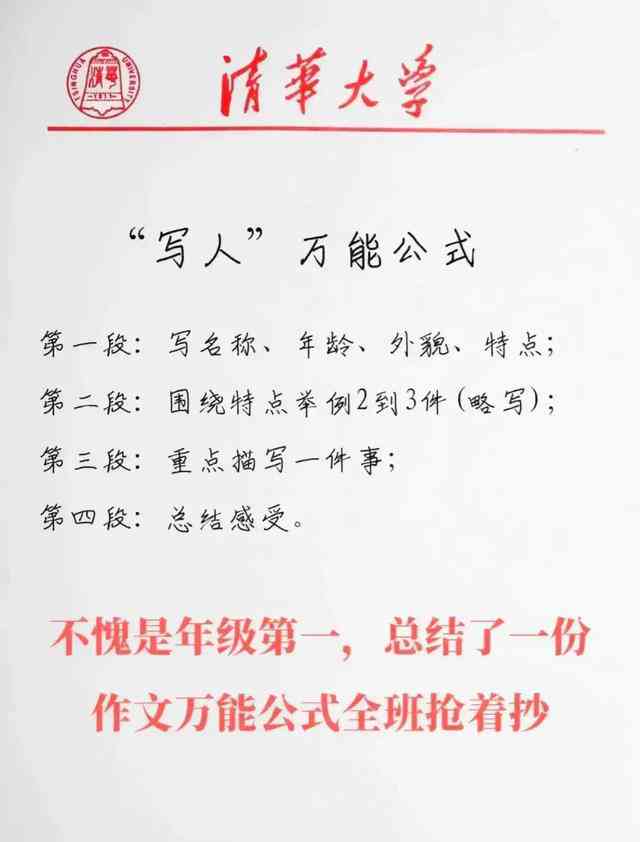 TSINGHUA UNIVERSITY
清華
-1911-
清華大学
“写人”万能公式
第一段：写名称、年龄、外貌、特点；
第二段：围绕特点举例2到3件(略写)；
第三段：重点描写一件事；
第四段：总结感受。
不愧是年级第一，总结了一份
作文万能公式全班抢着抄